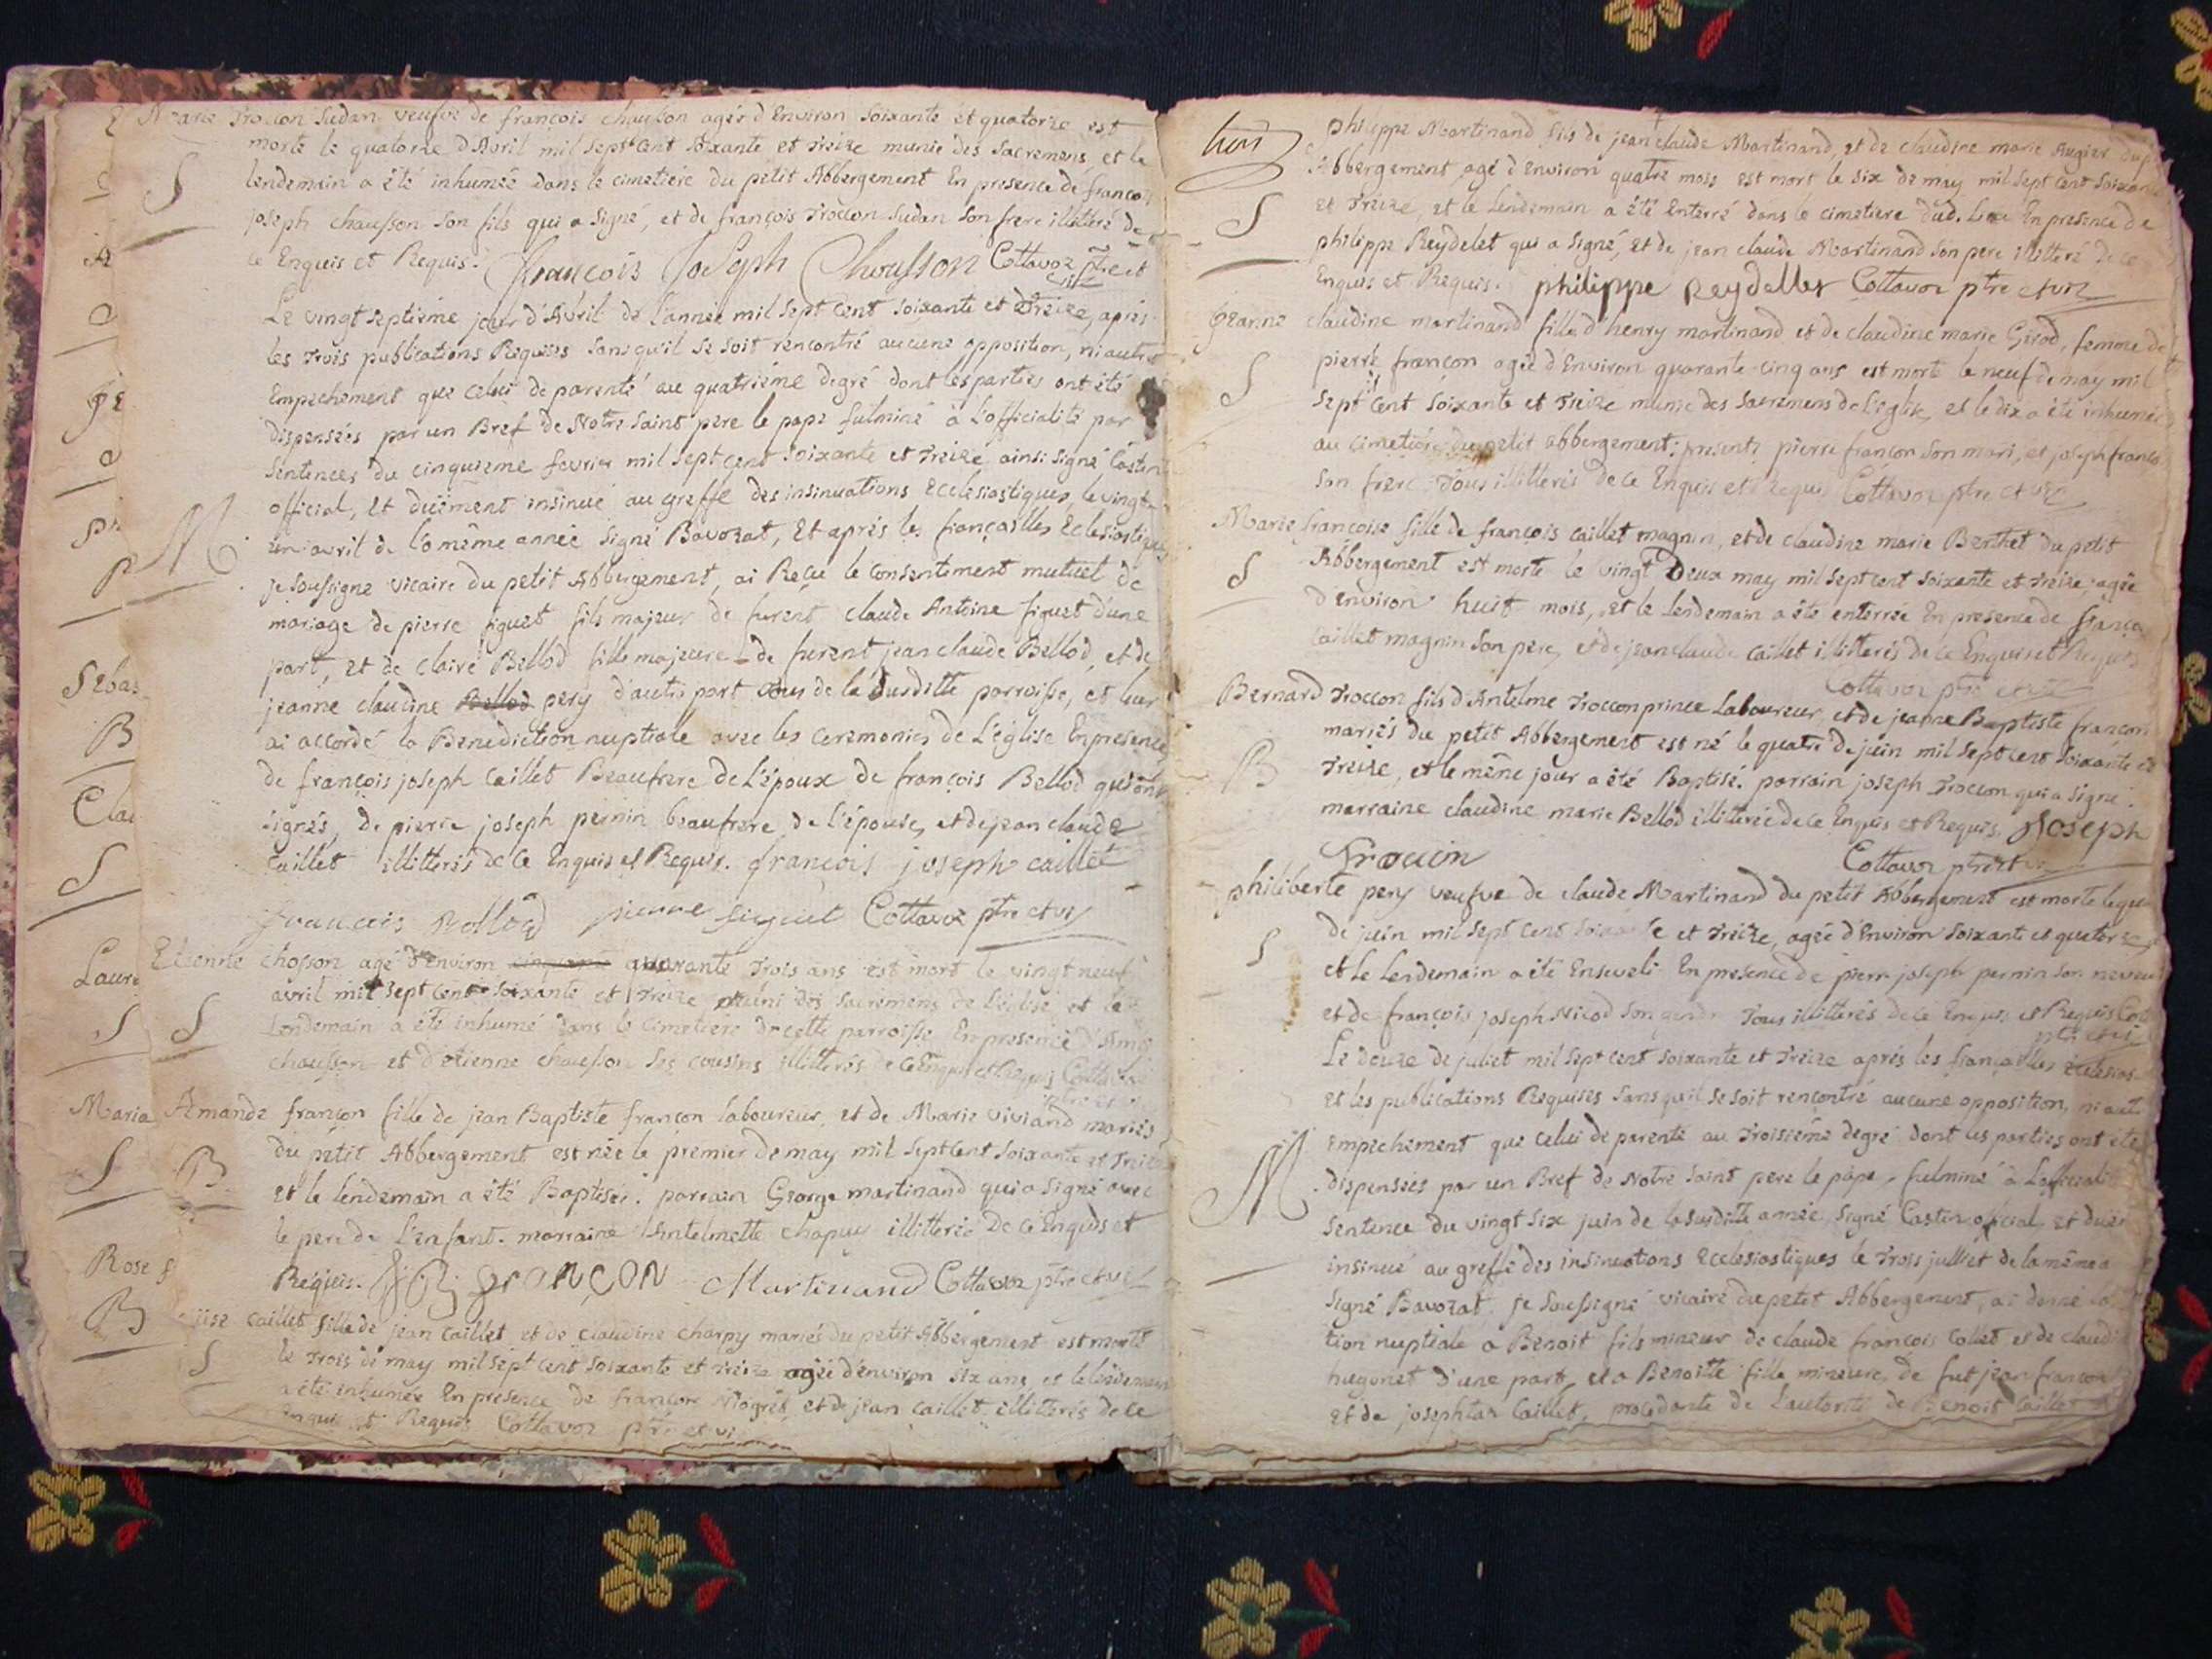 Marie Troccon Sudan veufve de françois chausson agée d'Environ soixante et quatorze est
morte le quatorze d'Avril mil sept cent soixante et treize munie des sacremens et le
lendemain a été inhumée dans le cimetière du petit Abbergement En presence de françois
S
joseph chausson son fils qui a signé, et de françois Troccon Sudan son frere illiteré de
ce Enquis et Requis. françois joseph Chousson Cottavoz ptre et
vic
Le vingt septième jour d'Avril de l'année mil sept cent soixante et treize, après
les trois publications Requises sans qu'il se soit rencontré aucune opposition, ni autre
Empechement que celui de parenté au quatrième degré dont les parties ont été
dispensées par un Bref de Notre saint pere le pape fulminé à L'officialité par
sentences du cinquieme fevrier mil sept cent soixante et treize ainsi signé Castin
official, Et duëment insinué au greffe des insinuations Ecclesiastiques le vingt
M
un avril de la même année signé Bavozat, Et après les fiançailles Eclesiastiques
je soussigné vicaire du petit Abbergement, ai Reçu le consentement mutuel de
mariage de pierre figuet fils majeur de furent claude Antoine figuet d'une
part, et de claire Bellod fille majeure de furent jean claude Bellod, et de
jeanne claudine Bellod pery d'autre part tous de la susditte parroisse, et leur
ai accordé la Benediction nuptiale avec les ceremonies de L'église En presence
de françois joseph Caillet Beaufrere de L'époux de françois Bellod qui ont
signés, de pierre joseph pernin beaufrere de L'épouse, et de jean claude
Caillet illitterés de ce Enquis et Requis. françois joseph caillet
françois Bollod pierre figuet Cottavoz ptre et vic
Etienne chosson agé d'Environ cinquante quarante trois ans est mort le vingt neuf
avril mil sept cent soixante et treize muni des sacremens de L'église et le
S
Lendemain a été inhumé dans le cimetiere de cette parroisse En presence d'Amé
chausson et d'étienne chausson ses cousins illitterés de ce Enquis et Requis Cottavoz
Amande françon fille de jean Baptiste françon laboureur, et de Marie Viviand mariés
du petit Abbergement est née le premier de may mil sept cent soixante et treize
B
et le lendemain a été Baptisée. parrain George martinand qui a signé avec
le pere de L'enfant. marraine Antelmette chapuy illitterée De ce Enquis et
Requis. J B françon Martinand Cottavoz ptre et vic
caillet fille de jean caillet, et de claudine charpy mariés du petit Abbergement est morte
S
le trois de may mil sept cent soixante et treize agée d'environ six ans, et le lendemain
a été inhumée En presence de françois et de jean caillet illitterés de ce
Enquis et Requis Cottavoz ptre et vic
Sebas
B
Cla
S
Laure
S
Maria
S
Rose f
B
philippe Martinand fils de jean claude Martinand, et de claudine marie Augier du pt
Abbergement, agé d'Environ quatre mois est mort le six de may mil sept cent soixante
S
et treize, et le lendemain a été Enterré dans le cimetiere dud. Lieu En presence de
philippe Reydelet qui a signé, et de jean claude Martinand son pere illitteré de ce
Enquis et Requis. philippe Reydellet Cottavoz ptre et vic
jeanne claudine martinand fille d'henry martinand et de claudine marie Girod, femme de
pierre françon agée d'Environ quarante cinq ans est morte le neuf de may mil
S
sept cent soixante et treize munie des sacremens de L'église, et le dix a été inhumée
au cimetière du petit abbergement: presents pierre françon son mari, et joseph franço
son frere Tous illitterés de ce Enquis et Requis Cottavoz ptre et vic
Marie françoise fille de françois caillet magnin, et de claudine marie Berthet du petit
Abbergement est morte le vingt Deux may mil sept cent soixante et treize, agée
S
d'environ huit mois, et le lendemain a été enterrée En presence de franço
caillet magnin son pere, et de jean claude caillet illitterés de ce Enquis et Requis
Cottavoz ptre et vic
Bernard Troccon fils d'Antelme Troccon prince Laboureur, et de jeanne Baptiste françon
mariés du petit Abbergement est né le quatre de juin mil sept cent soixante et
B
treize, et le même jour a été Baptisé. parrain joseph Troccon qui a signé.
marraine claudine marie Bellod illitterée de ce Enquis et Requis. joseph
Troccon Cottavoz ptre et vic
philiberte pery veufve de claude Martinand du petit Abbergement est morte le
de juin mil sept cent soixante et treize, agée d'Environ soixante et quatorze,
S
et le Lendemain a été Enseveli En presence de pierre joseph pernin son neveu
et de françois joseph Nicod son gendre Tous illitterés de ce Enquis et Requis Cot
ptre et vic
Le douze de juliet mil sept cent soixante et treize après les fiançailles Eclesias
et les publications Requises sans qu'il se soit rencontré aucune opposition, ni aut
Empechement que celui de parenté au troisième degré dont les parties ont été
M
dispensées par un Bref de Notre saint pere le pape, fulminé à L'officialité
sentence du vingt six juin de la susditte année, signé Castin official, et duëm
insinué au greffe des insinuations Ecclesiastiques le trois julliet de la même a
signé Bavozat. je soussigné vicaire du petit Abbergement, ai donné la
tion nuptiale a Benoit fils mineur de claude françois Collet et de claud
hugonet d'une part, et a Benoitte fille mineure de fut jean françois
Et de josephtas Caillet, procedante de L'autorité de Benoit Caillet